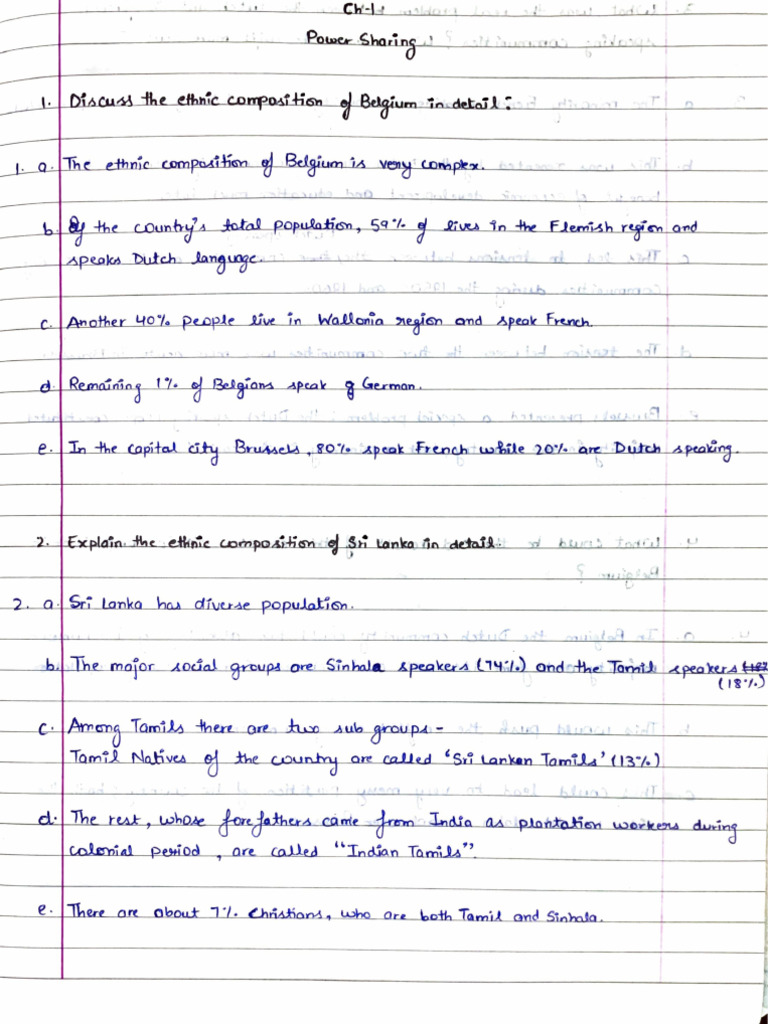 Ch-1
Power Sharing
1. Discuss the ethnic composition of Belgium in detail:
1. a. The ethnic composition of Belgium is very complex.
b. Of the country's total population, 59% of lives in the Flemish region and
speaks Dutch language.
c. Another 40% people live in Wallonia region and speak French.
d. Remaining 1% of Belgians speak German.
e. In the capital city Brussels, 80% speak French while 20% are Dutch speaking.
2. Explain the ethnic composition of Sri Lanka in detail.
2. a. Sri Lanka has diverse population.
b. The major social groups are Sinhala speakers (74%) and the Tamil speakers
(18%)
c. Among Tamils there are two sub groups -
Tamil Natives of the country are called 'Sri Lankan Tamils' (13%)
d. The rest, whose forefathers came from India as plantation workers during
colonial period, are called "Indian Tamils".
e. There are about 7% Christians, who are both Tamil and Sinhala.